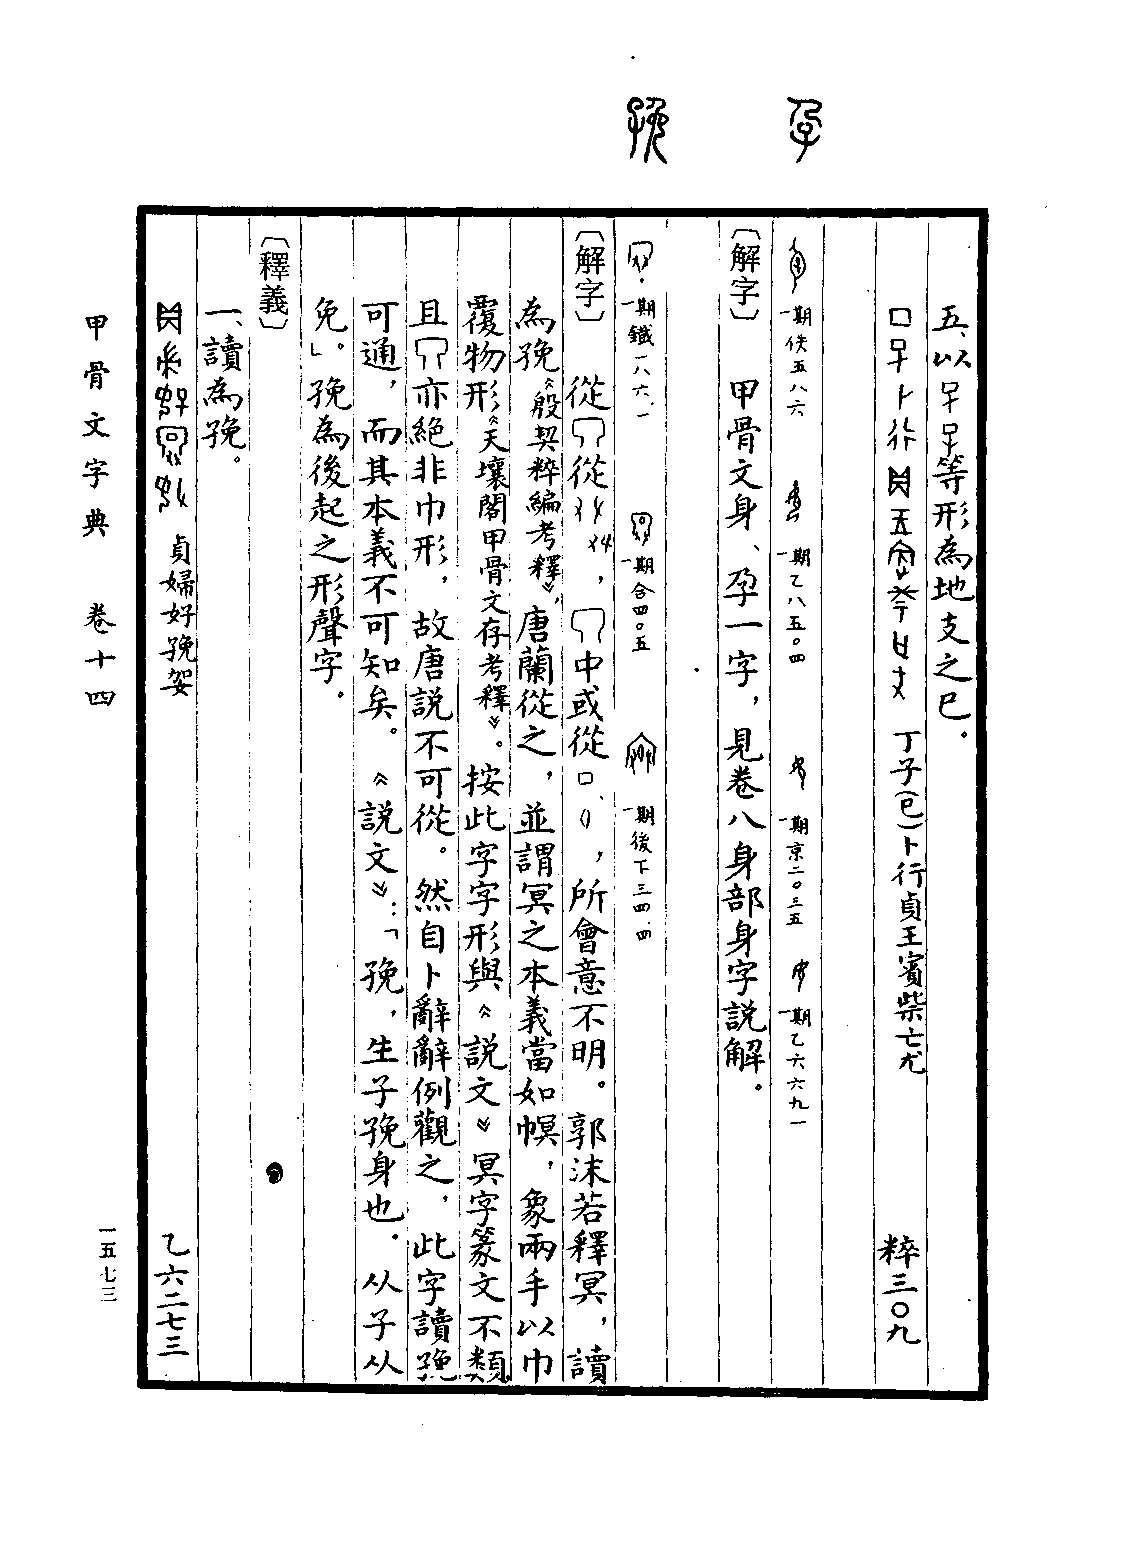 孕
㝃
五、以等形為地支之巳.
丁子(巳)卜行貞王賓柴亡尤 粹三〇九
一期佚五八六 一期乙八五〇四 一期京二〇三五 一期乙六六九一
〔解字〕 甲骨文身、孕一字,見卷八身部身字說解.
一期鐵一八六.一 一期合四〇五 一期後下三四.四
〔解字〕 從從,中或從口、,所會意不明。郭沫若釋冥,讀
為㝃《殷契粹編考釋》,唐蘭從之,並謂冥之本義當如幎,象兩手以巾
覆物形《天壤閣甲骨文存考釋》。按此字字形與《說文》冥字篆文不類
且亦絕非巾形,故唐說不可從。然自卜辭辭例觀之,此字讀㝃
可通,而其本義不可知矣。《說文》:「㝃,生子㝃身也.从子从
免。」㝃為後起之形聲字.
〔釋義〕
一、讀為㝃。
貞婦好㝃妿 乙六二七三
甲骨文字典 卷十四
一五七三